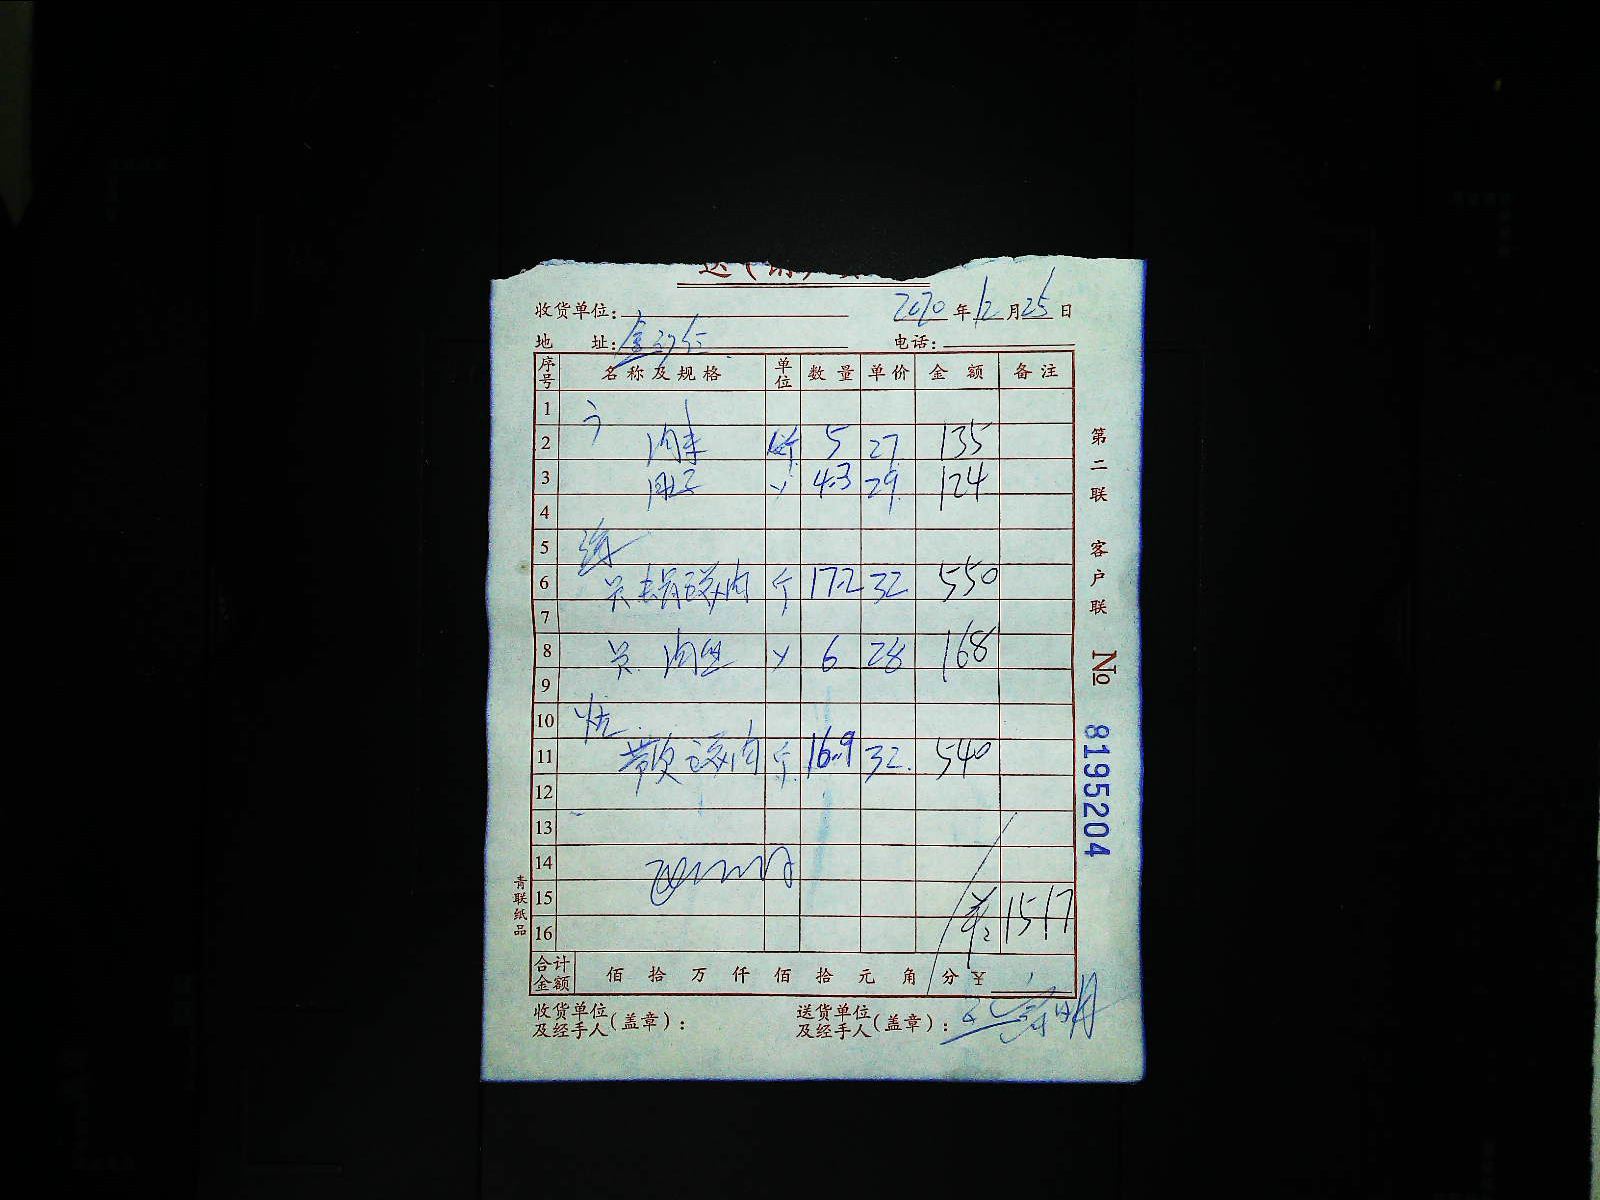 收货单位: 2020年12月25日
地 址: 电话:
序号 名称及规格 单位 数量 单价 金额 备注
1
2 肉末 斤 5 27 135
3 4.3 29 124
4
5
6 肉 斤 17.2 32 550
7
8 肉丝 6 28 168
9
10
11 带皮 肉 斤 16.9 32 540
12
13
14
15 1517
16
合计金额 佰 拾 万 仟 佰 拾 元 角 分 ¥
收货单位及经手人(盖章): 送货单位及经手人(盖章):
第二联 客户联 № 8195204
青联纸品